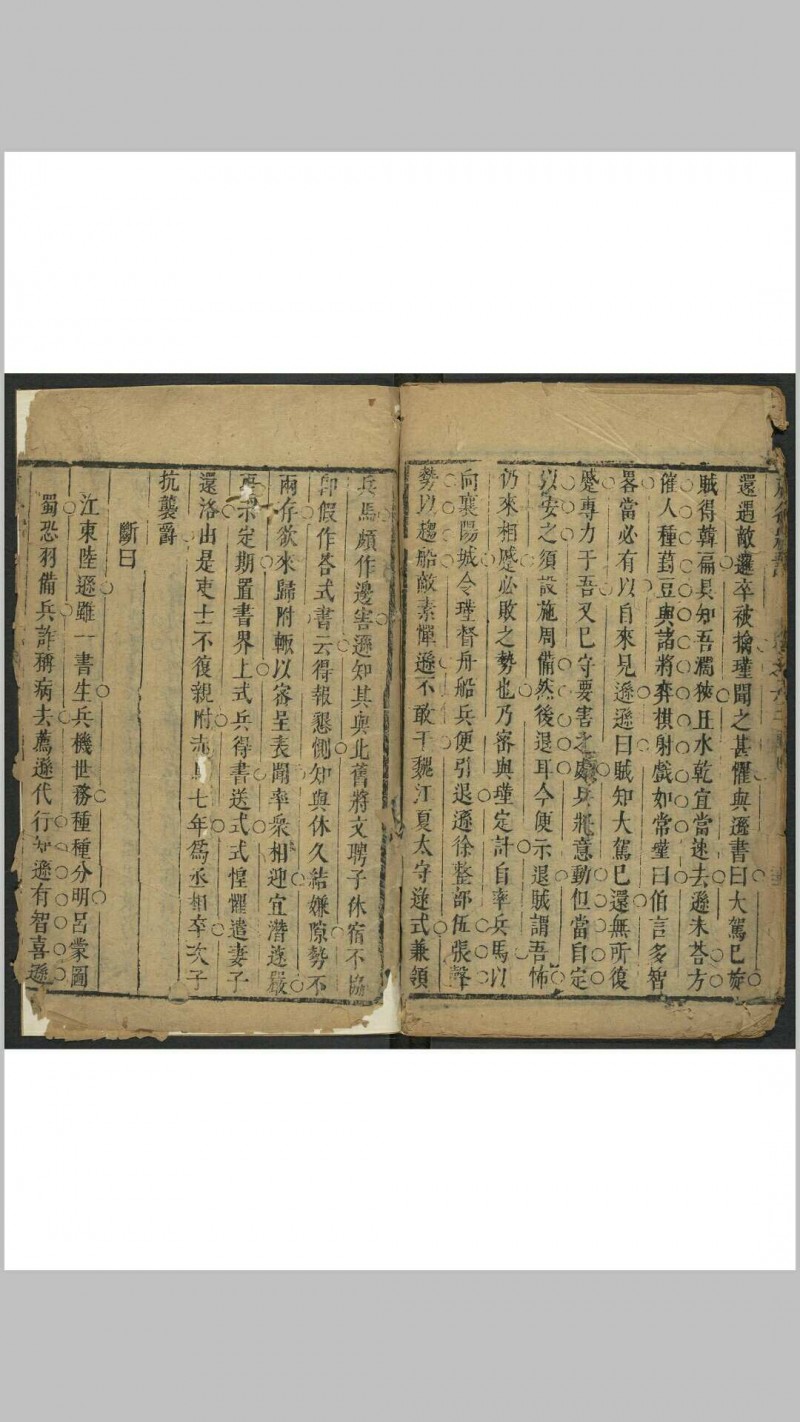 還遇敵邏卒被擒瑾聞之甚懼與遜書曰大駕已旋
賊得韓扁具知吾濶狹且水乾宜當速去遜未荅方
催人種葑豆與諸將弈棋射戲如常瑾曰伯言多智
畧當必有以自來見遜遜曰賊知大駕已還無所復
蹙專力于吾又已守要害之處兵將意動但當自定
以安之須設施周備然後退耳今便示退賊謂吾怖
仍來相蹙必敗之勢也乃審與瑾定計自率兵馬以
向襄陽城令瑾督舟船兵便引退遜徐整部伍張聲
勢以趨船敵素憚遜不敢干魏江夏太守逯式兼領
兵馬頗作邊害遜知其與北舊將文聘子休宿不協
卽假作荅式書云得報懇惻知與休久結嫌隙勢不
兩存欲來歸附輙以密呈表聞率衆相迎宜潛速嚴
更示定期置書界上式兵得書送式式惶懼遣妻子
還洛由是吏士不復親附赤烏七年爲丞相卒次子
抗襲爵
斷曰
江東陸遜雖一書生兵機世務種種分明呂蒙圖
蜀恐羽備兵詐稱病去薦遜代行知遜有智喜遜